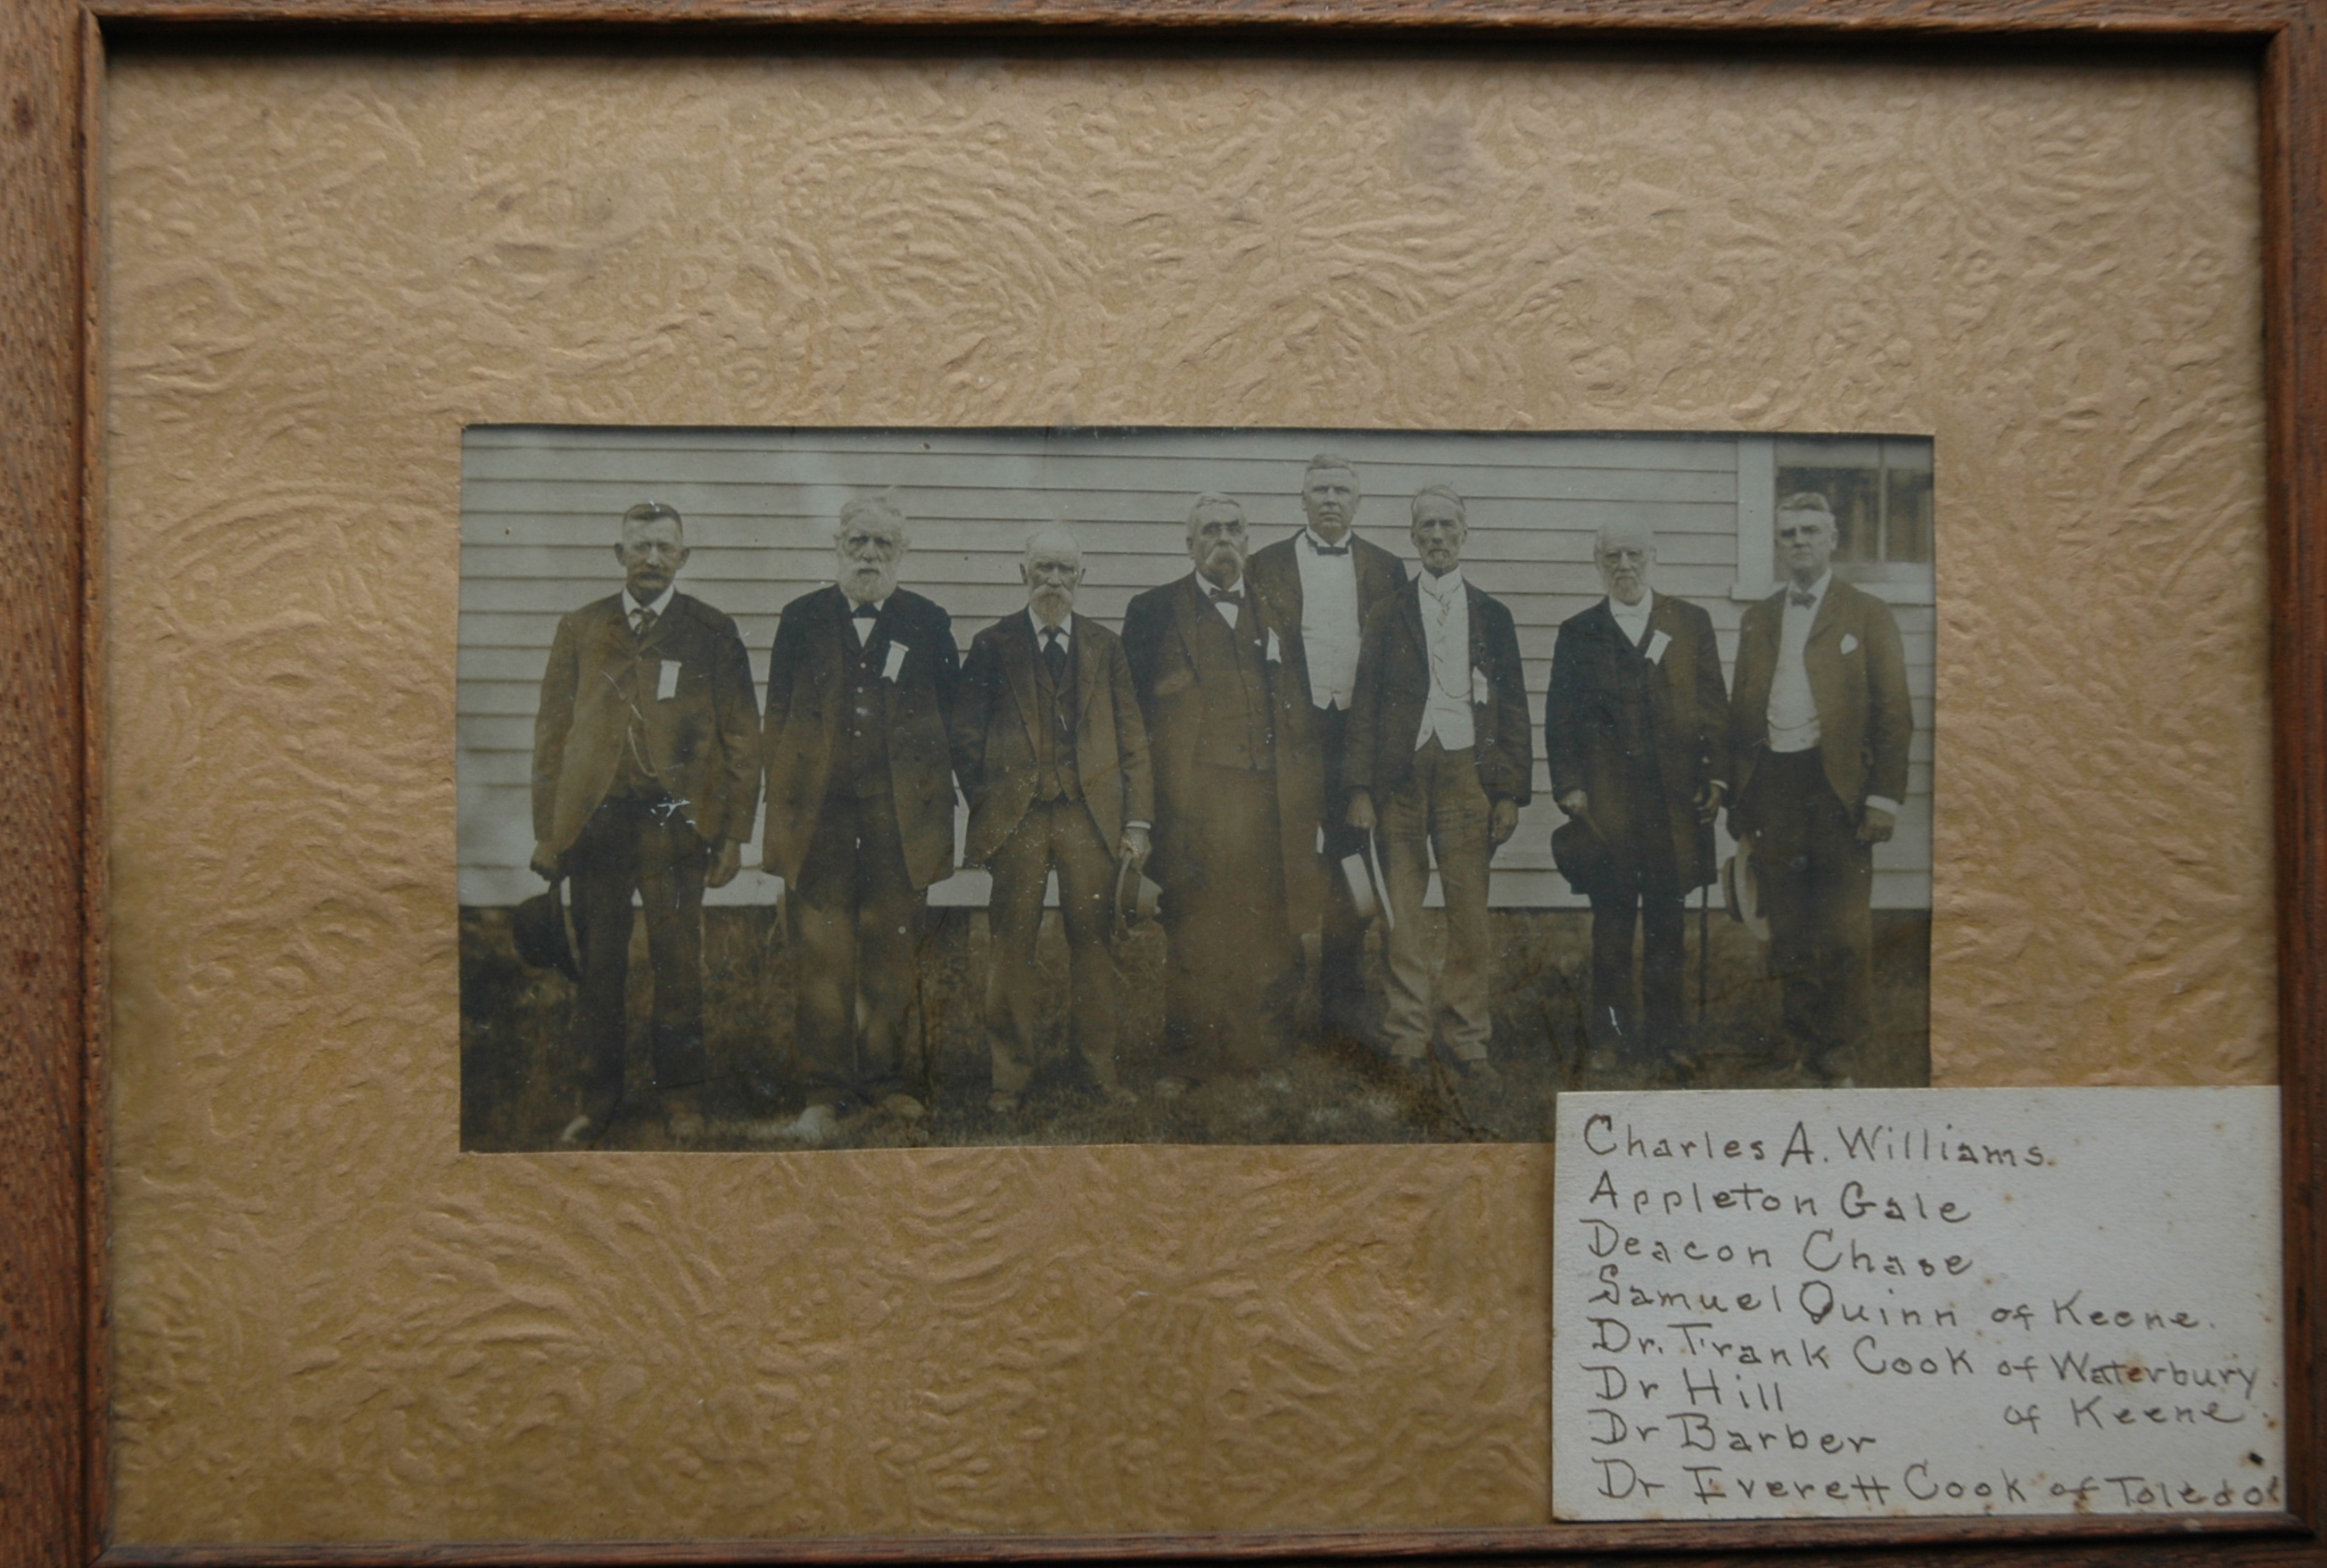 Charles A. Williams.
Appleton Gale
Deacon Chase
Samuel Quinn of Keene.
Dr. Frank Cook of Waterbury.
Dr Hill of Keene.
Dr Barber
Dr Everett Cook of Toledo